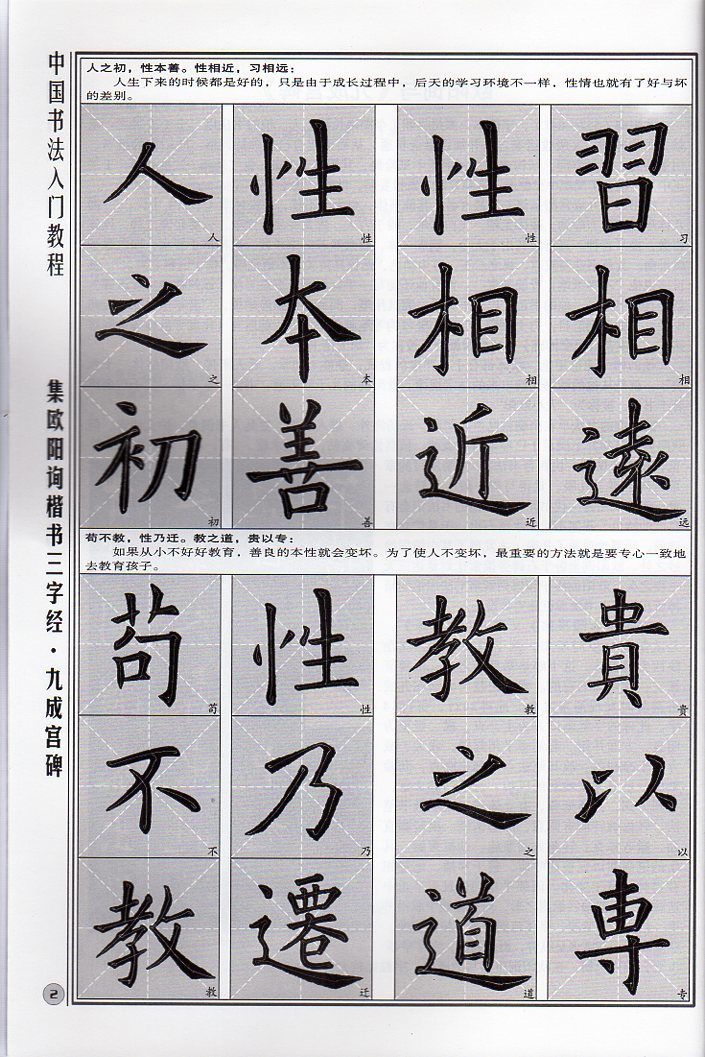 中国书法入门教程
集欧阳询楷书三字经·九成宫碑
2
人之初，性本善。性相近，习相远：
人生下来的时候都是好的，只是由于成长过程中，后天的学习环境不一样，性情也就有了好与坏
的差别。
人之初
人之初
性本善
性本善
性相近
性相近
習相遠
习相远
苟不教，性乃迁。教之道，贵以专：
如果从小不好好教育，善良的本性就会变坏。为了使人不变坏，最重要的方法就是要专心一致地
去教育孩子。
苟不教
苟不教
性乃遷
性乃迁
教之道
教之道
貴以専
贵以专